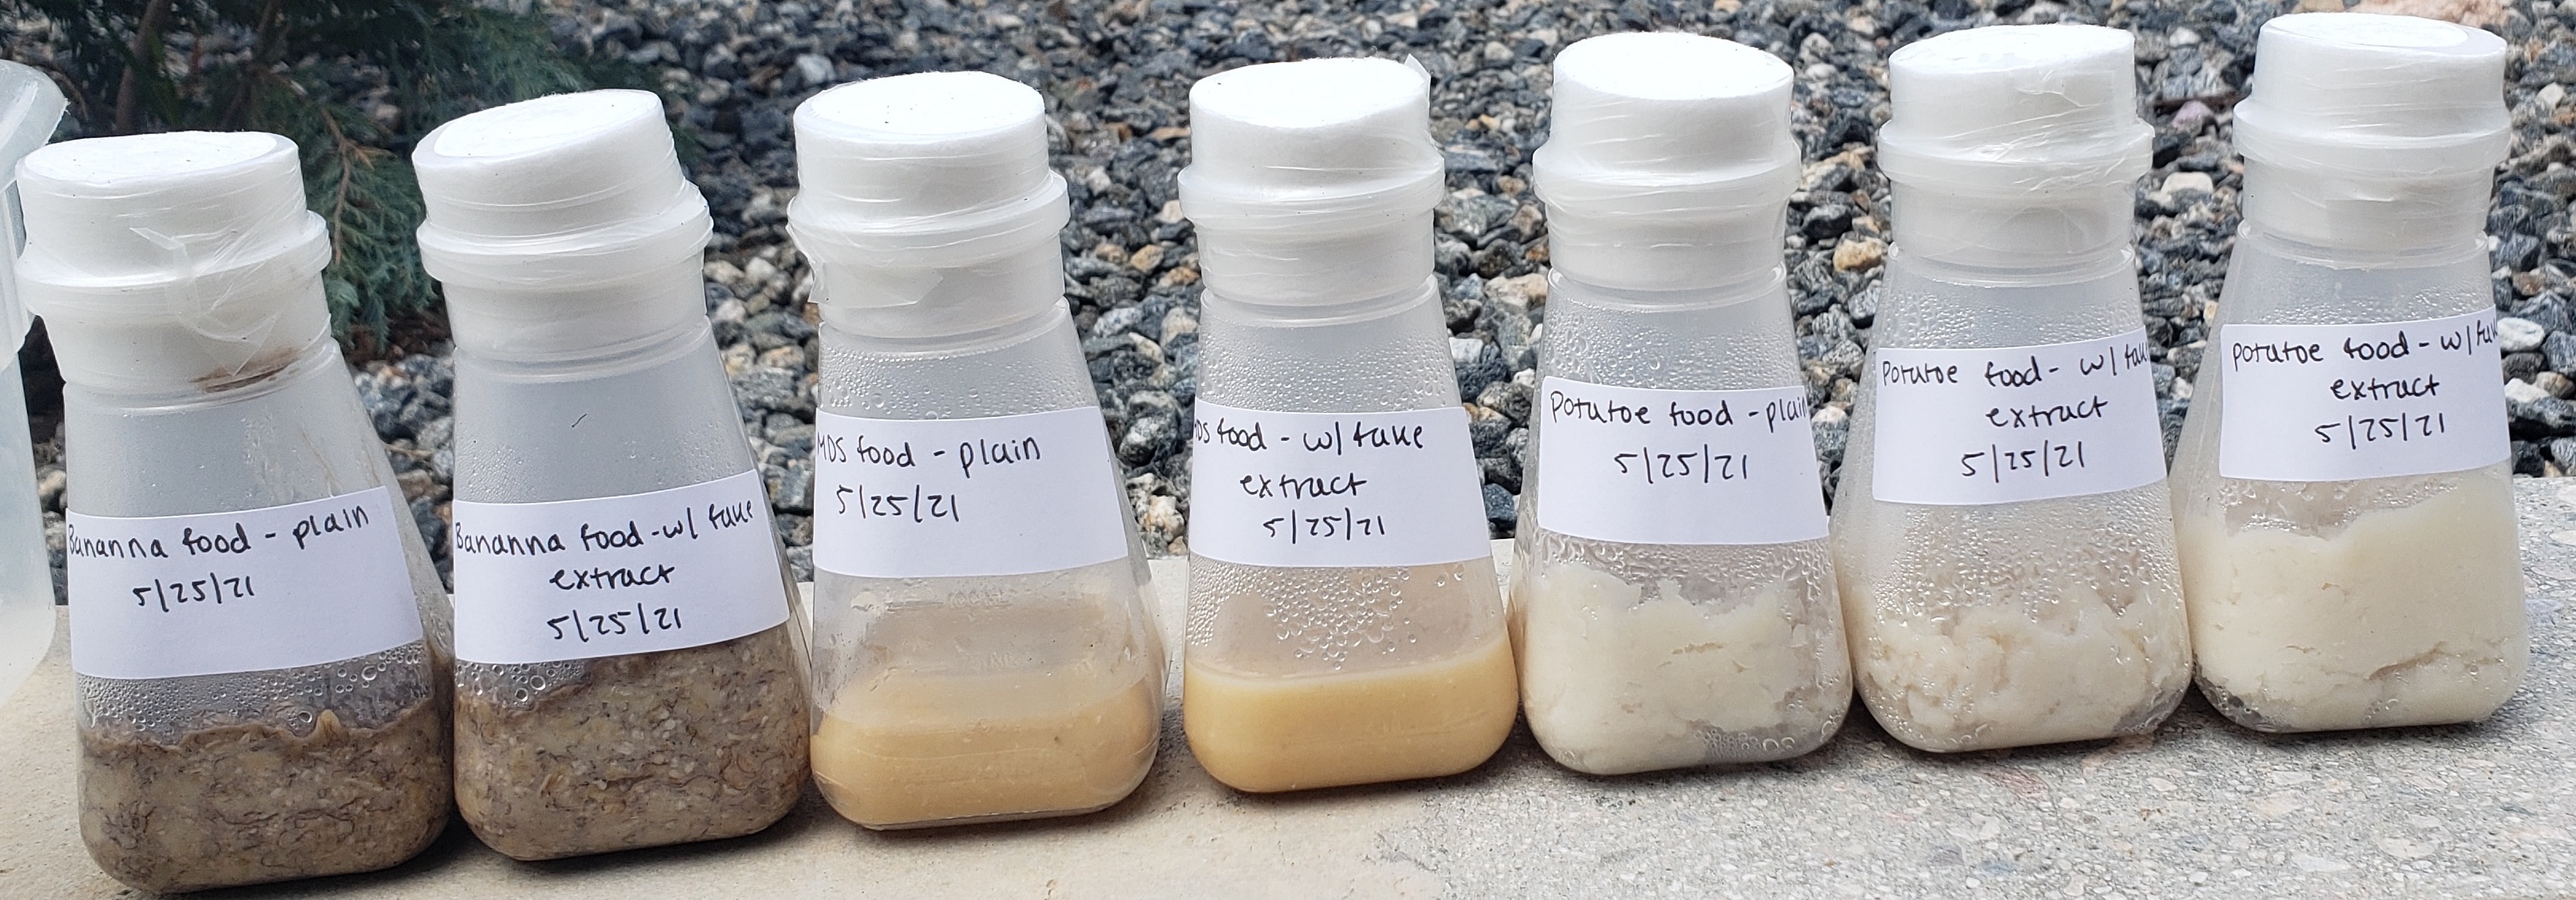 Bananna food - plain
5/25/21
Bananna food - w/ fake
extract
5/25/21
MDS food - plain
5/25/21
MDS food - w/ fake
extract
5/25/21
Potatoe food - plain
5/25/21
Potatoe food - w/ fake
extract
5/25/21
Potatoe food - w/ fak
extract
5/25/21